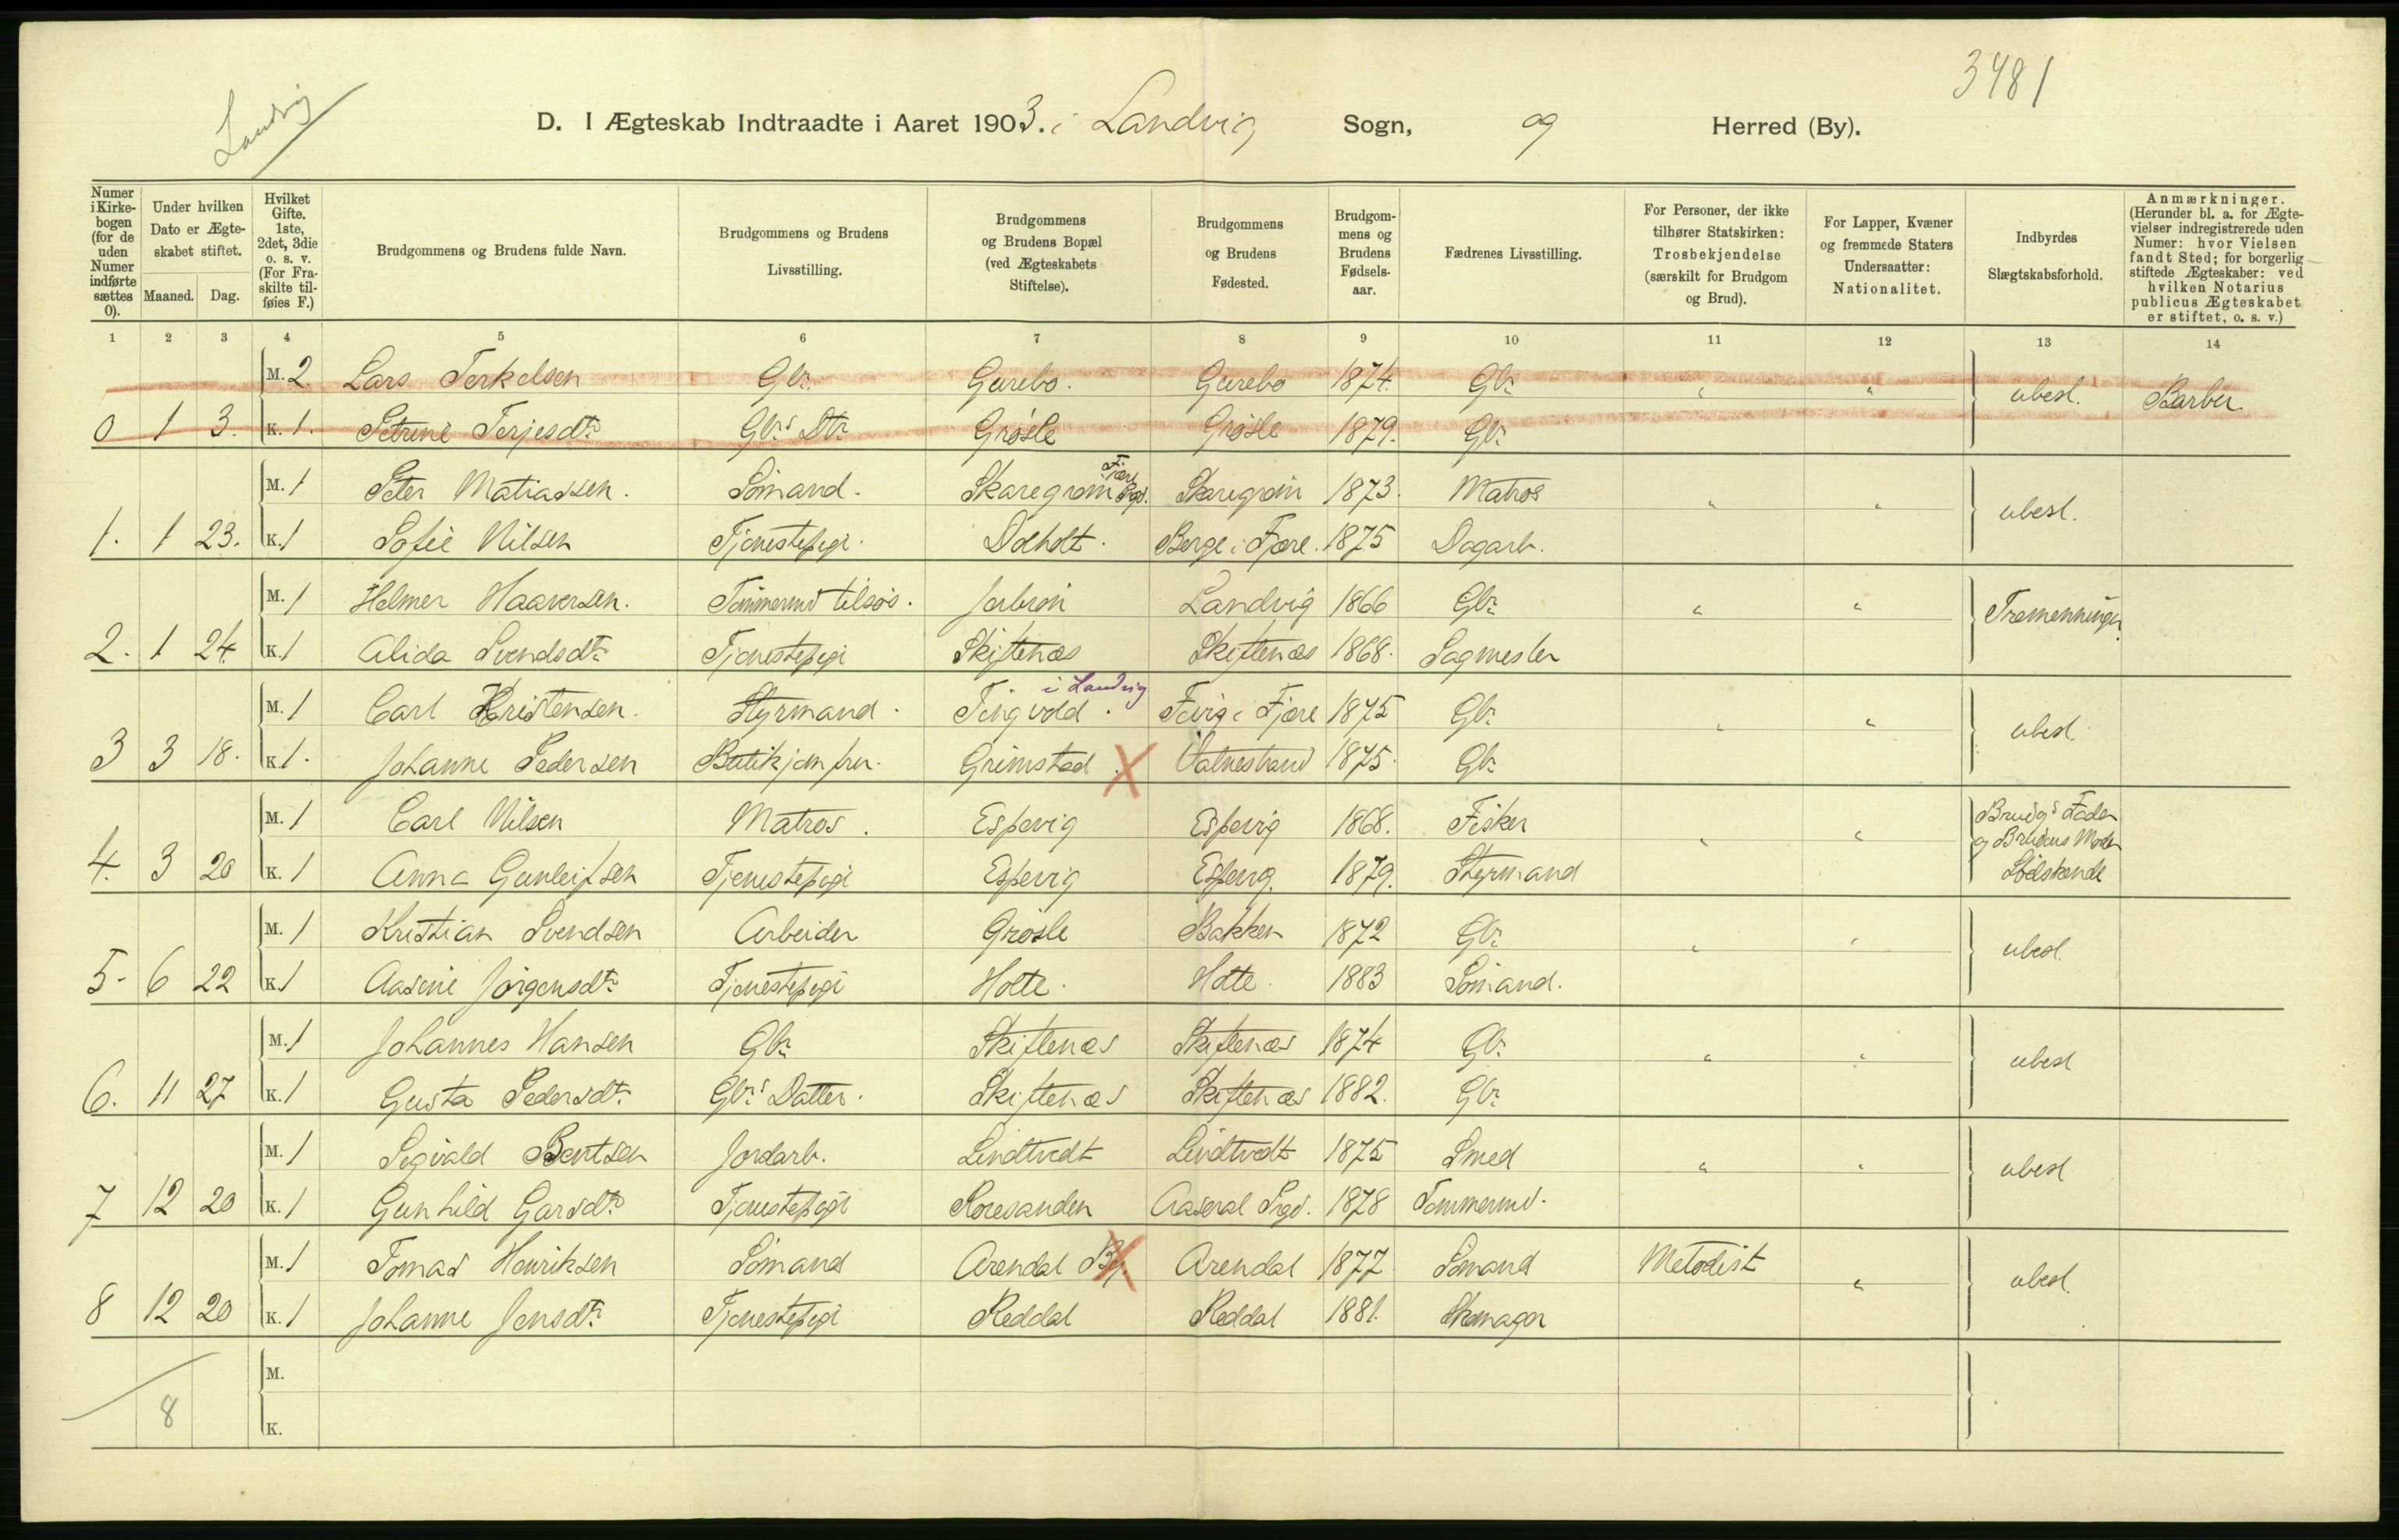 3481
Landvig
D. I Ægteskab Indtraadte i Aaret 1903. i Landvig Sogn, og Herred (By).
Numer i Kirke-bogen (for de uden Numer indførte sættes 0).
Under hvilken Dato er Ægte-skabet stiftet.
Maaned. Dag.
Hvilket Gifte. 1ste, 2det, 3die o. s. v. (For Fra-skilte til-føies F.)
Brudgommens og Brudens fulde Navn.
Brudgommens og Brudens Livsstilling.
Brudgommens og Brudens Bopæl (ved Ægteskabets Stiftelse).
Brudgommens og Brudens Fødested.
Brudgom-mens og Brudens Fødsels-aar.
Fædrenes Livsstilling.
For Personer, der ikke tilhører Statskirken: Trosbekjendelse (særskilt for Brudgom og Brud).
For Lapper, Kvæner og fremmede Staters Undersaatter: Nationalitet.
Indbyrdes Slægtskabsforhold.
Anmærkninger. (Herunder bl. a. for Ægte-vielser indregistrerede uden Numer: hvor Vielsen fandt Sted; for borgerlig stiftede Ægteskaber: ved hvilken Notarius publicus Ægteskabet er stiftet, o. s. v.)
1 2 3 4 5 6 7 8 9 10 11 12 13 14
M. 2. Lars Terkelsen Gbr. Gurebo. Gurebo 1874. Gbr. " " ubesl. Barbu
0 1 3. K. 1. Petrine Terjesdtr. Gbr.s Dtr. Grøsle Grøsle 1879. Gbr.
M. 1 Peter Matiassen. Sömand. Skaregrøm Fjære Prgd. Skaregrøm 1873. Matros " " ubesl.
1. 1 23. K. 1 Sofie Nilsen Tjenestepige. Dolholt. Berge i Fjære. 1875 Dagarb.
M. 1 Helmer Haaversen. Tømmermd tilsøs. Landvig 1866 Gbr. " " Tremenninger
2. 1 24. K. 1 Alida Svendsdtr. Tjenestepige Skiftenæs Skiftenæs 1868. Sagmester
M. 1 Carl Kristensen. Styrmand. Tingvold. i Landvig Fævig i Fjære 1875 Gbr. " " ubesl.
3 3 18. K. 1. Johanne Pedersen Butikjomfru. Grimstad. X Valnestrand 1875. Gbr.
M. 1 Carl Nilsen Matros. Espevig Espevig 1868. Fisker " " Brudg.s Fader og Brudens Moder Södskende
4. 3 20 K. 1 Anna Gunleifsen Tjenestepige Espevig Espevig. 1879. Styrmand
M. 1 Kristian Svendsen Arbeider Grøsle Bakken 1872 Gbr. " " ubesl.
5. 6 22 K. 1 Aasine Jörgensdtr. Tjenestepige Holte. Holte. 1883 Sömand.
M. 1 Johannes Hansen Gbr. Skiftenæs Skiftenæs 1874 Gbr. " " ubesl
6. 11 27 K. 1 Gusta Pedersdtr. Gbr.s Datter. Skiftenæs Skiftenæs 1882. Gbr.
M. 1 Sigvald Bentsen Jordarb. Lindtvedt Lindtvedt 1875 Smed " " ubesl
7 12 20 K. 1 Gunhild Garsdtr. Tjenestepige Roresanden Aaseral Prgd. 1878 Tømmermd.
M. 1 Tomas Henriksen Sömand Arendal By. X Arendal 1877 Sømand Metodist " ubesl.
8 12 20 K. 1 Johanne Jensdtr. Tjenestepige Reddal Reddal 1881. Skomager
M.
8 K.